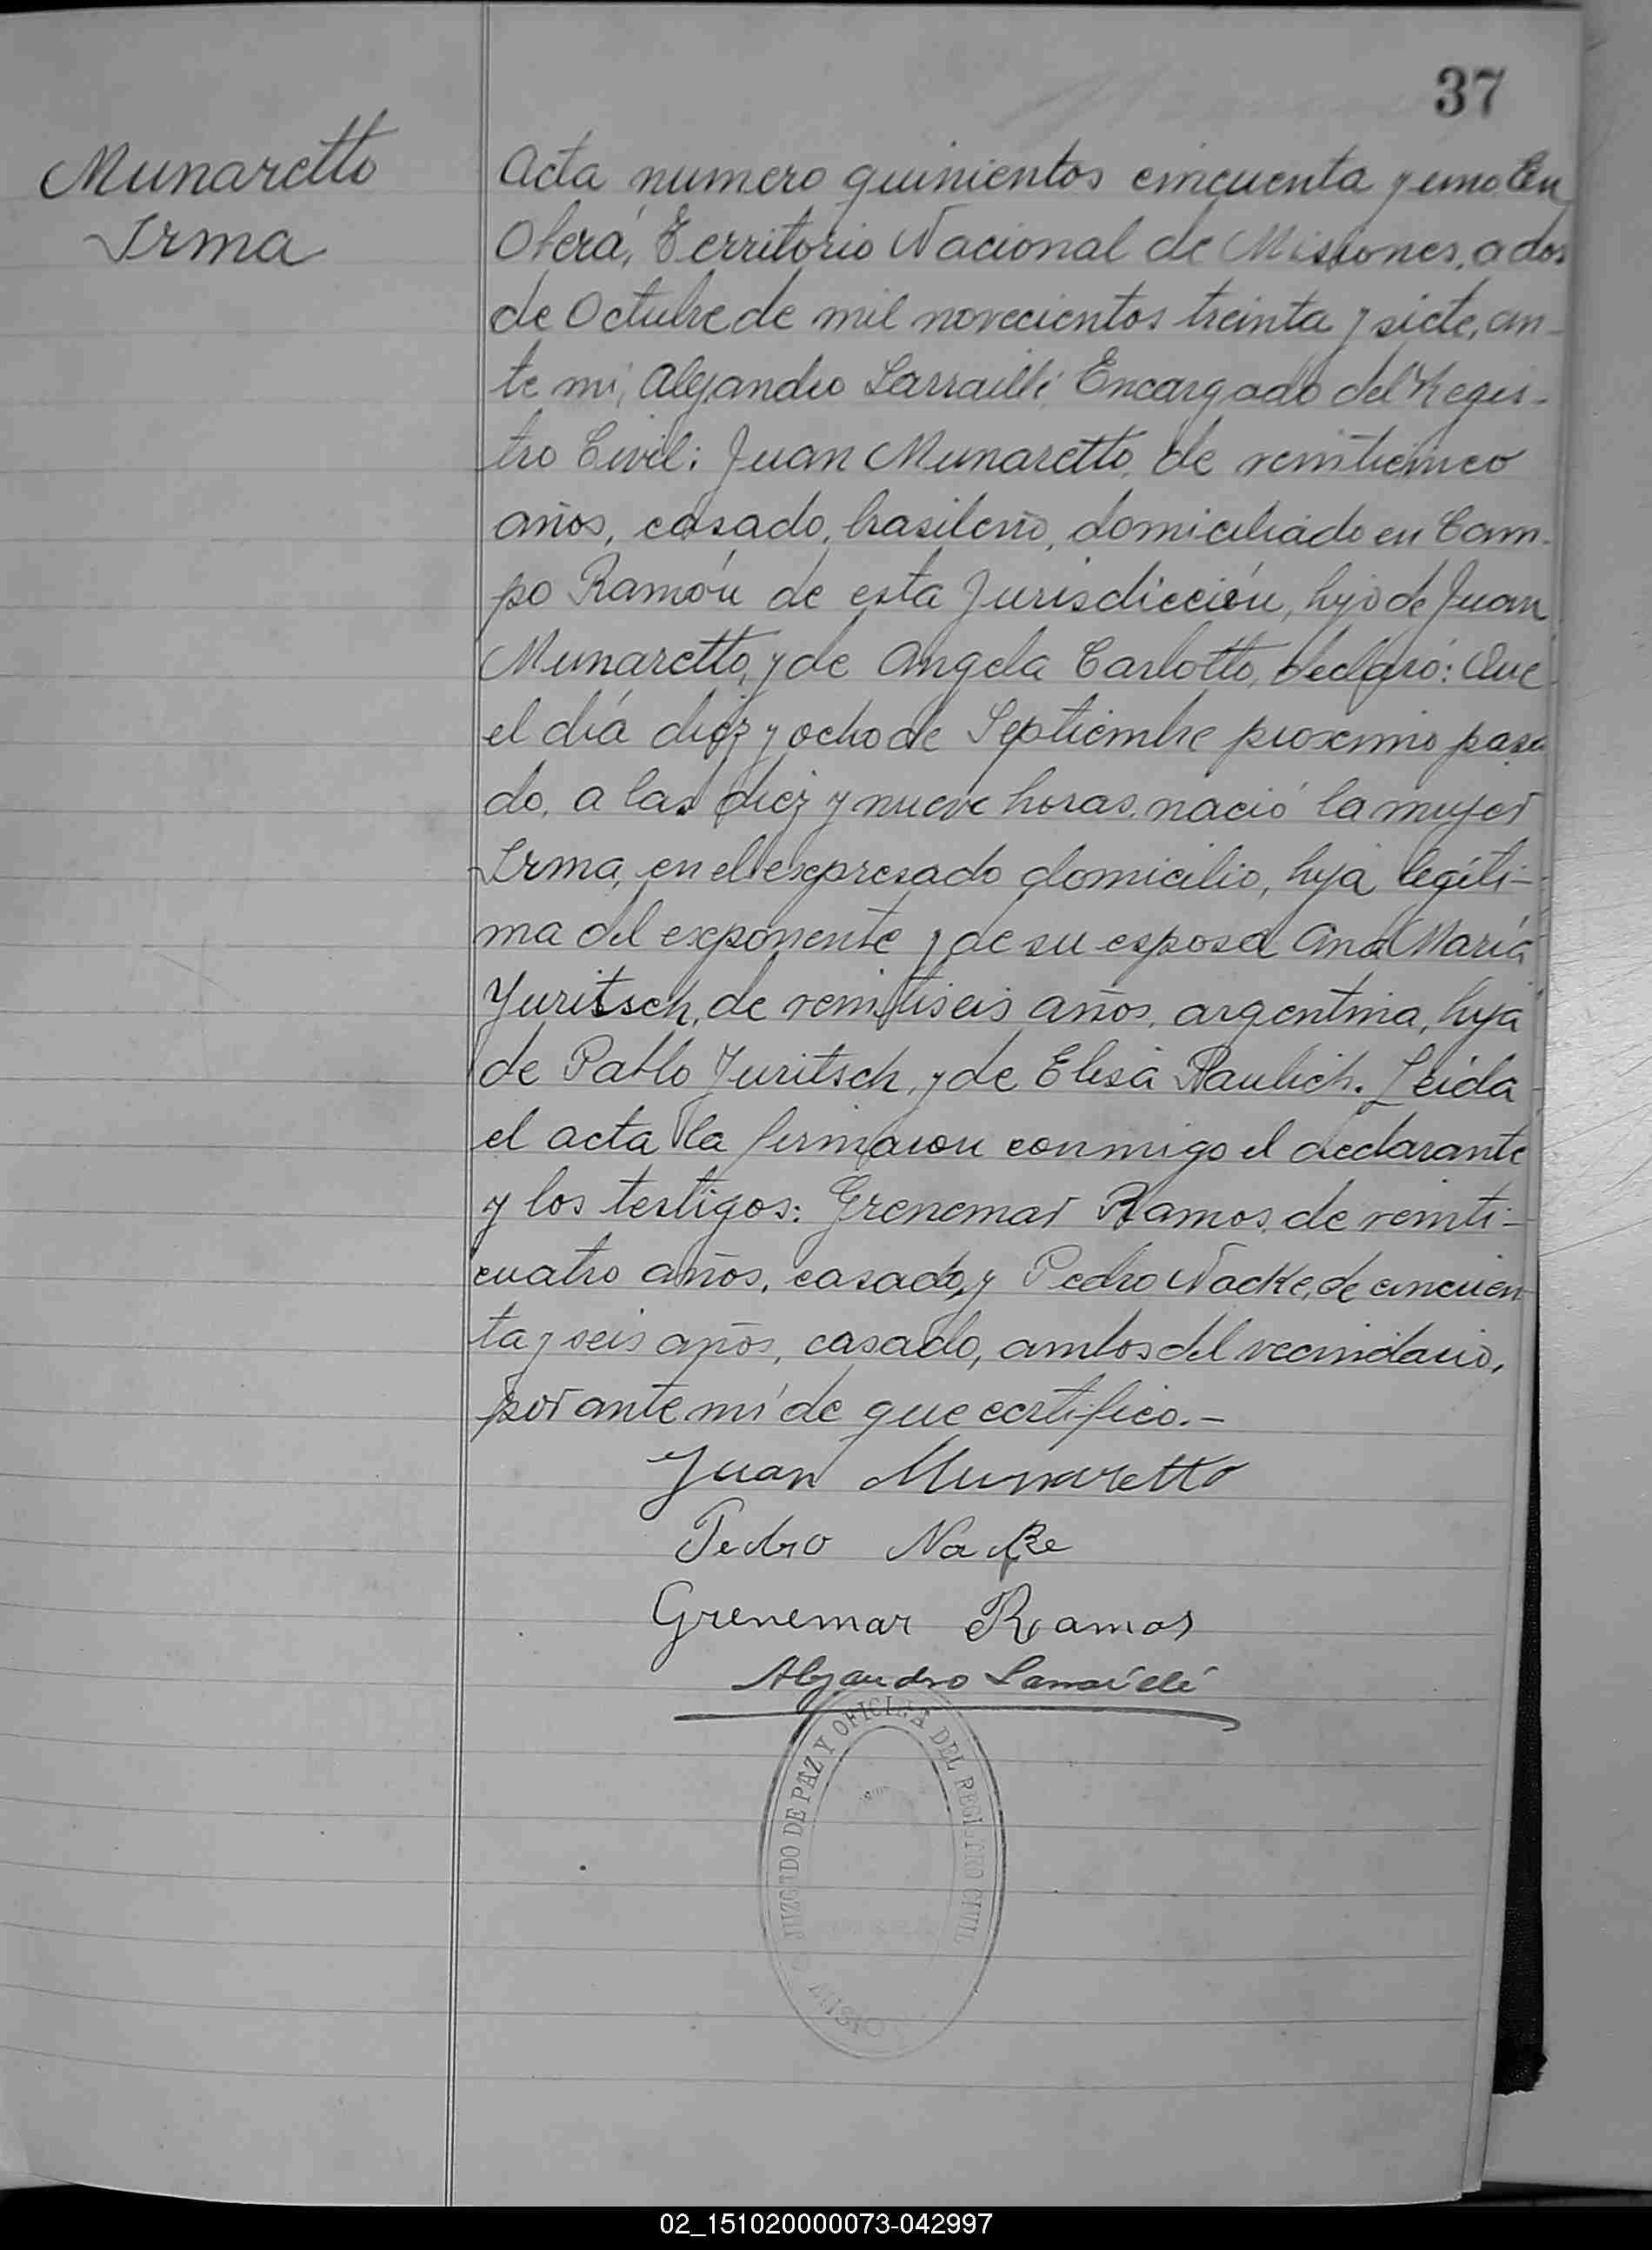 37
Munaretto
Irma
Acta numero quinientos cincuenta y uno En
Oberá, Territorio Nacional de Misiones, a dos
de Octubre de mil novecientos treinta y siete, an-
te mi, Alejandro Larraillé Encargado del Regis-
tro Civil: Juan Munaretto, de veinticinco
años, casado, brasileño, domiciliado en Cam-
po Ramón de esta Jurisdicción, hijo de Juan
Munaretto, y de Angela Carlotto, declaró: Que
el día diez y ocho de Septiembre proximo pasa
do, a las diez y nueve horas, nació la mujer
Irma, en el expresado domicilio, hija legíti-
ma del exponente y de su esposa Ana María
Yuritsch, de veintiseis años, argentina, hija
de Pablo Yuritsch, y de Elisa Paulich. Leida
el acta la firmaron conmigo el declarante
y los testigos: Grenemar Ramos, de veinti-
cuatro años, casado, y Pedro Nacke, de cincuen
ta y seis años, casado, ambos del vecindario,
por ante mí de que certifico.-
Juan Munaretto
Pedro Nacke
Grenemar Ramos
Alejandro Larraillé
JUZGADO DE PAZ Y OFICINA DEL REGISTRO CIVIL
02_151020000073-042997